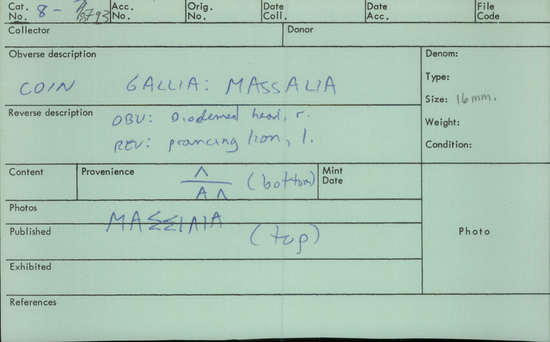 Cat. No. 8- Acc. No. Orig. No. Date Coll. Date Acc. File Code
Collector Donor
Obverse description Denom:
COIN GALLIA: MASSALIA Type:
Size: 16mm.
Reverse description OBV: Diademed head, r. Weight:
REV: prancing lion, l. Condition:
Content Provenience Λ (bottom) Mint Date
AΛ
Photos
MAΣΣIAIA
Published (top) Photo
Exhibited
References